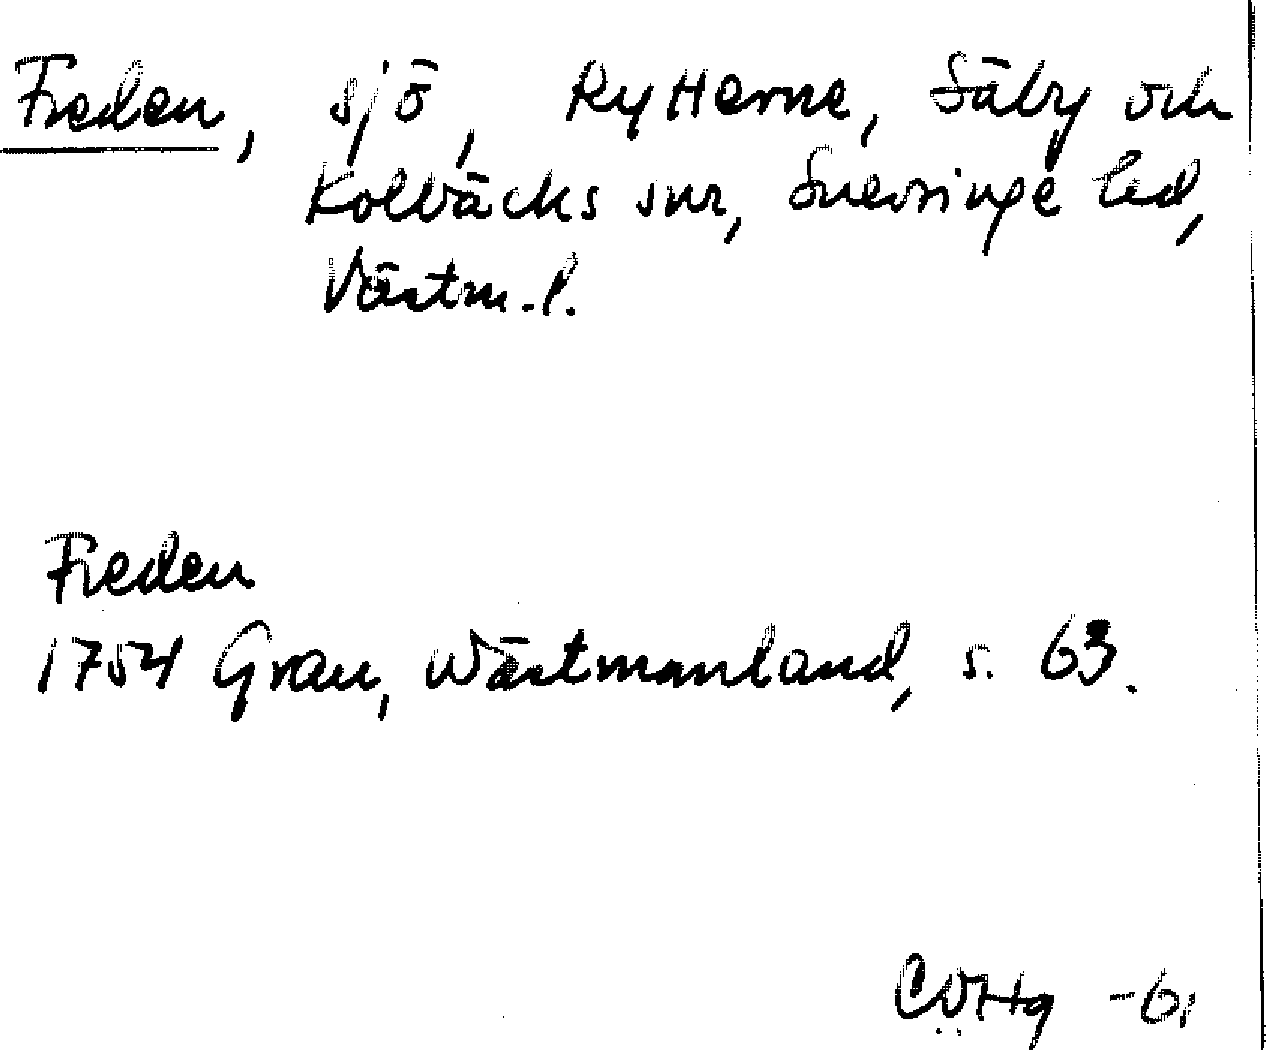 Freden, sjö, Rytterne, Säby och
Kolbäcks snr, Snevringe hd,
Västm. l.
Freden
1754 Grau, Wästmanland, s. 63.